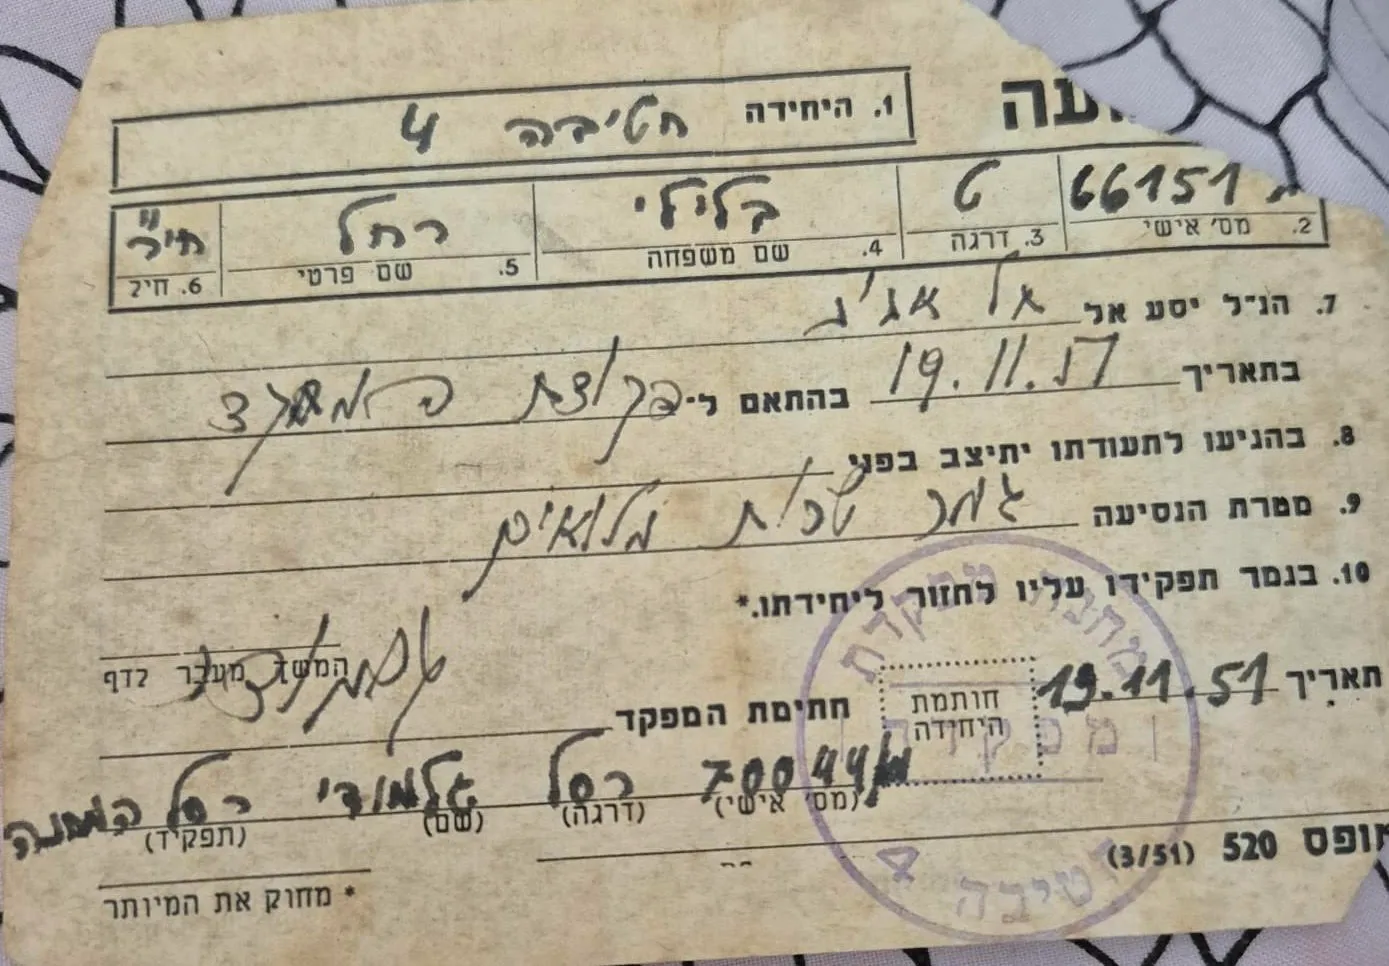 עה
1. היחידה חטיבה 4
66151
2. מס' אישי
ט
3. דרגה
בלילי
4. שם משפחה
רחל
5. שם פרטי
6. חיל
7. הנ״ל יסע אל
בתאריך 19.11.51 בהתאם ל־ פקודת
8. בהגיעו לתעודתו יתיצב בפני
9. מטרת הנסיעה גמר שרות מלואים
10. בגמר תפקידו עליו לחזור ליחידתו.*
המשך מעבר לדף
תאריך 19.11.51
חותמת היחידה
חתימת המפקד
70044 רסל
רסל המחנה
(מס' אישי) (דרגה) (שם) (תפקיד)
טופס 520 (3/51)
* מחוק את המיותר
מפקדת
חטיבה 4